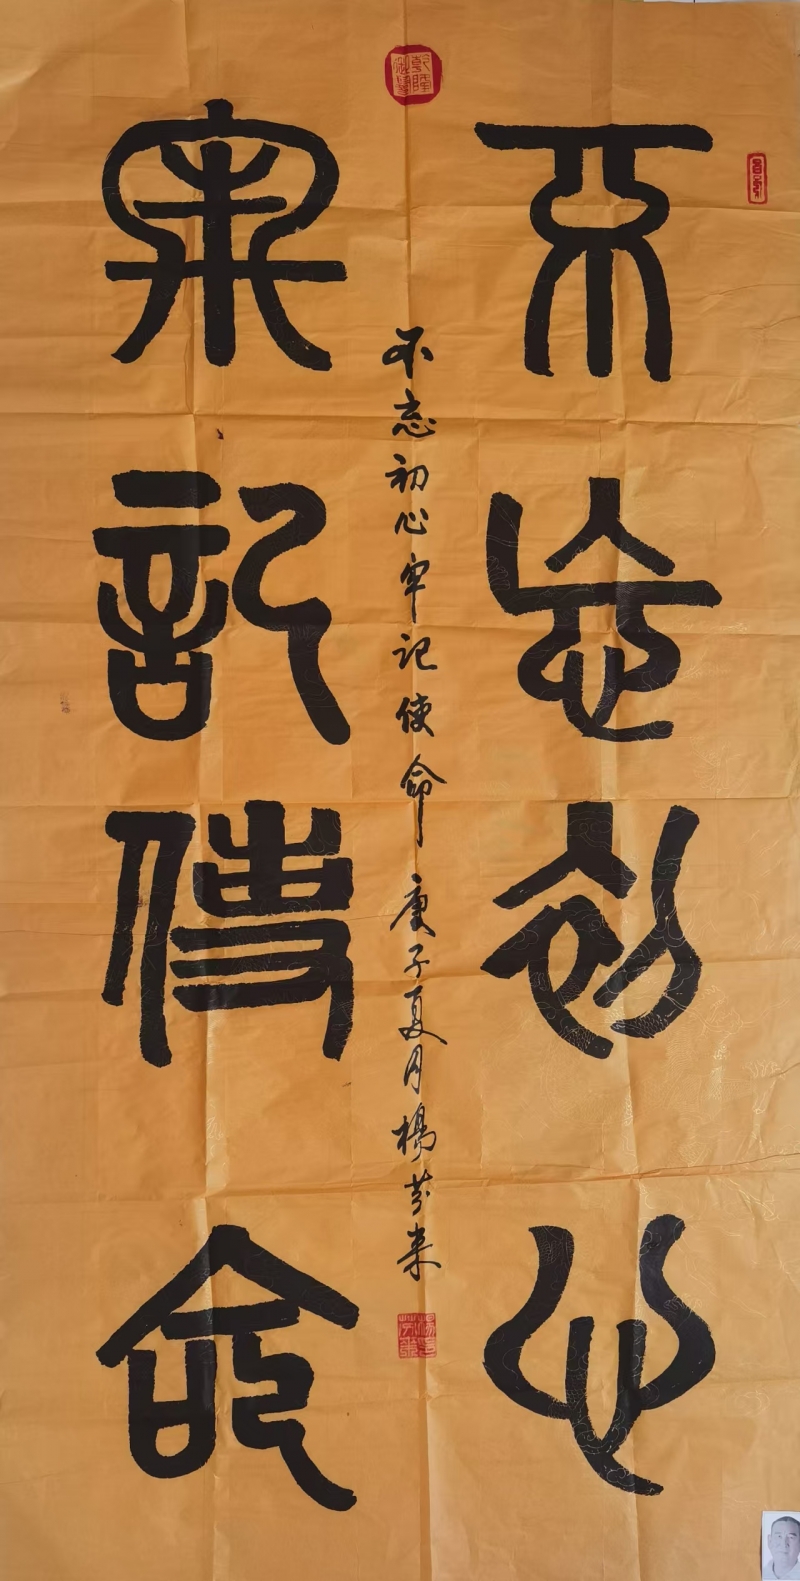 不忘初心
不忘初心牢记使命庚子夏月楊芬来
牢記使命